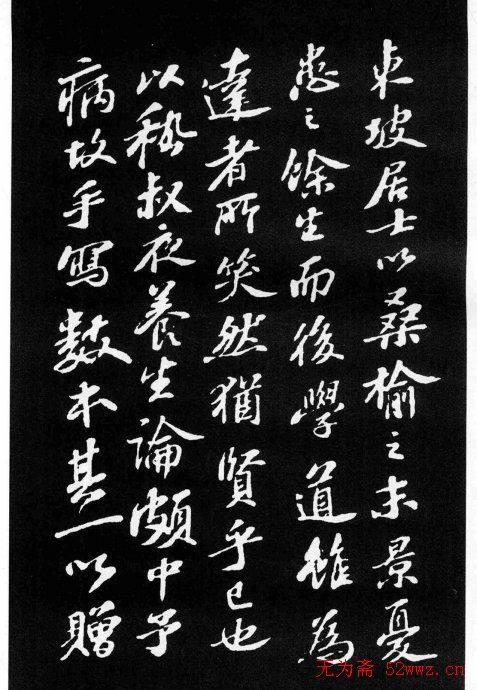 東坡居士以桑榆之末景憂
患之餘生而後學道雖為
達者所笑然猶賢乎已也
以嵇叔夜養生論頗中予
病故手寫數本其一以贈
无为斋 52wwz.cn